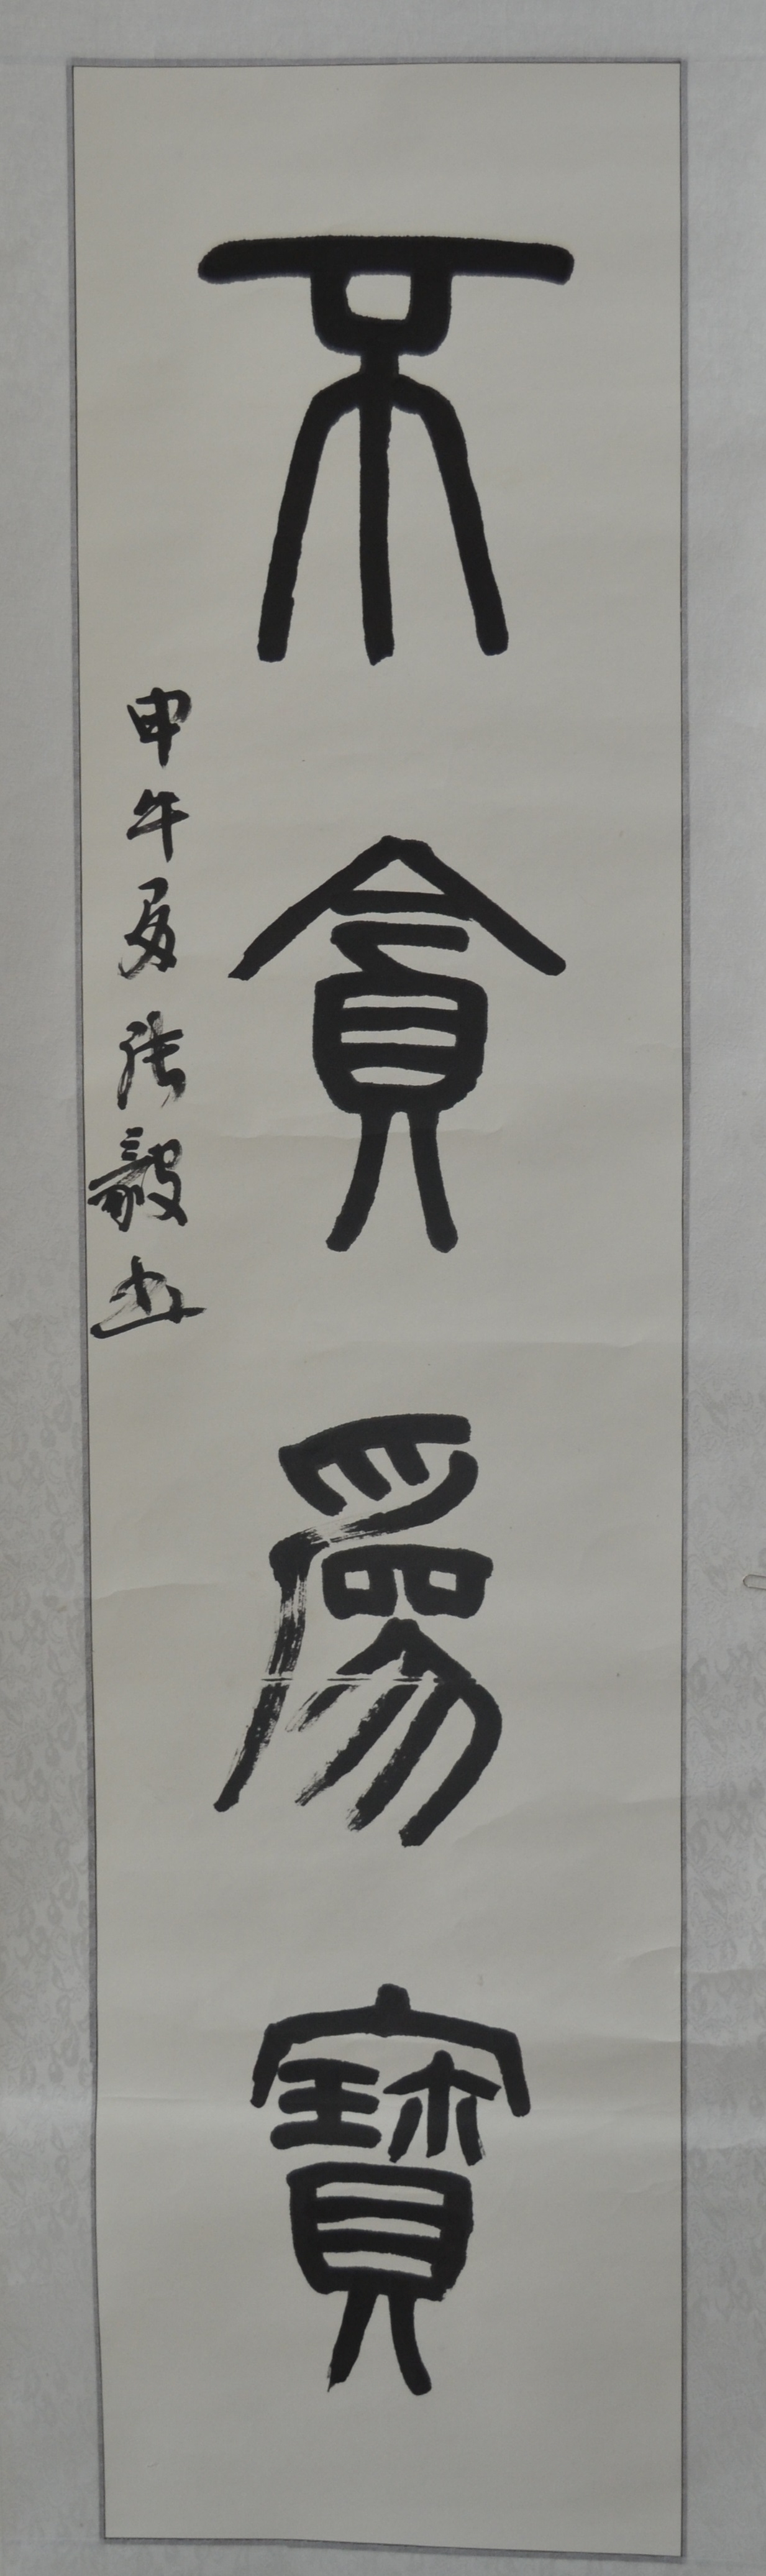 不貪爲寶
申午夏張毅書